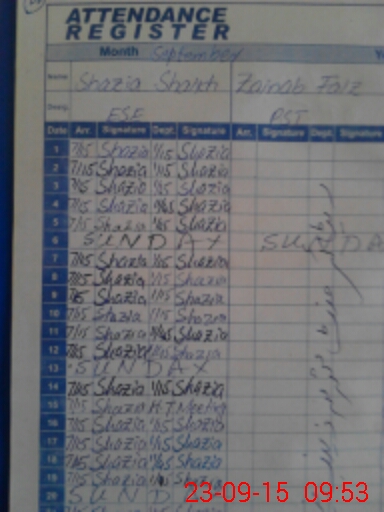 ATTENDANCE
REGISTER
Month September
Name Shazia Shaikh Zainab Faiz
Desig. ESE PST
Date Arr. Signature Dept. Signature Arr. Signature Dept. Signature
1 7/15 Shazia 1/15 Shazia
2 7/15 Shazia 1/15 Shazia
3 7/15 Shazia 1/15 Shazia
4 7/15 Shazia Shazia
5 7/15 Shazia Shazia
6 SUNDAY SUNDA
7 7/15 Shazia 1/15 Shazia
8 7/15 Shazia 1/15 Shazia
9 7/15 Shazia 1/15 Shazia
10 7/15 Shazia 1/15 Shazia
11 7/15 Shazia Shazia
12 7/15 Shazia Shazia
13 SUNDAY
14 7/15 Shazia 1/15 Shazia
15 7/15 Shazia H.T. Meeting
16 7/15 Shazia 1/15 Shazia
17 7/15 Shazia 1/15 Shazia
18 7/15 Shazia 1/15 Shazia
19 7/15 Shazia Shazia
20 SUND
23-09-15 09:53